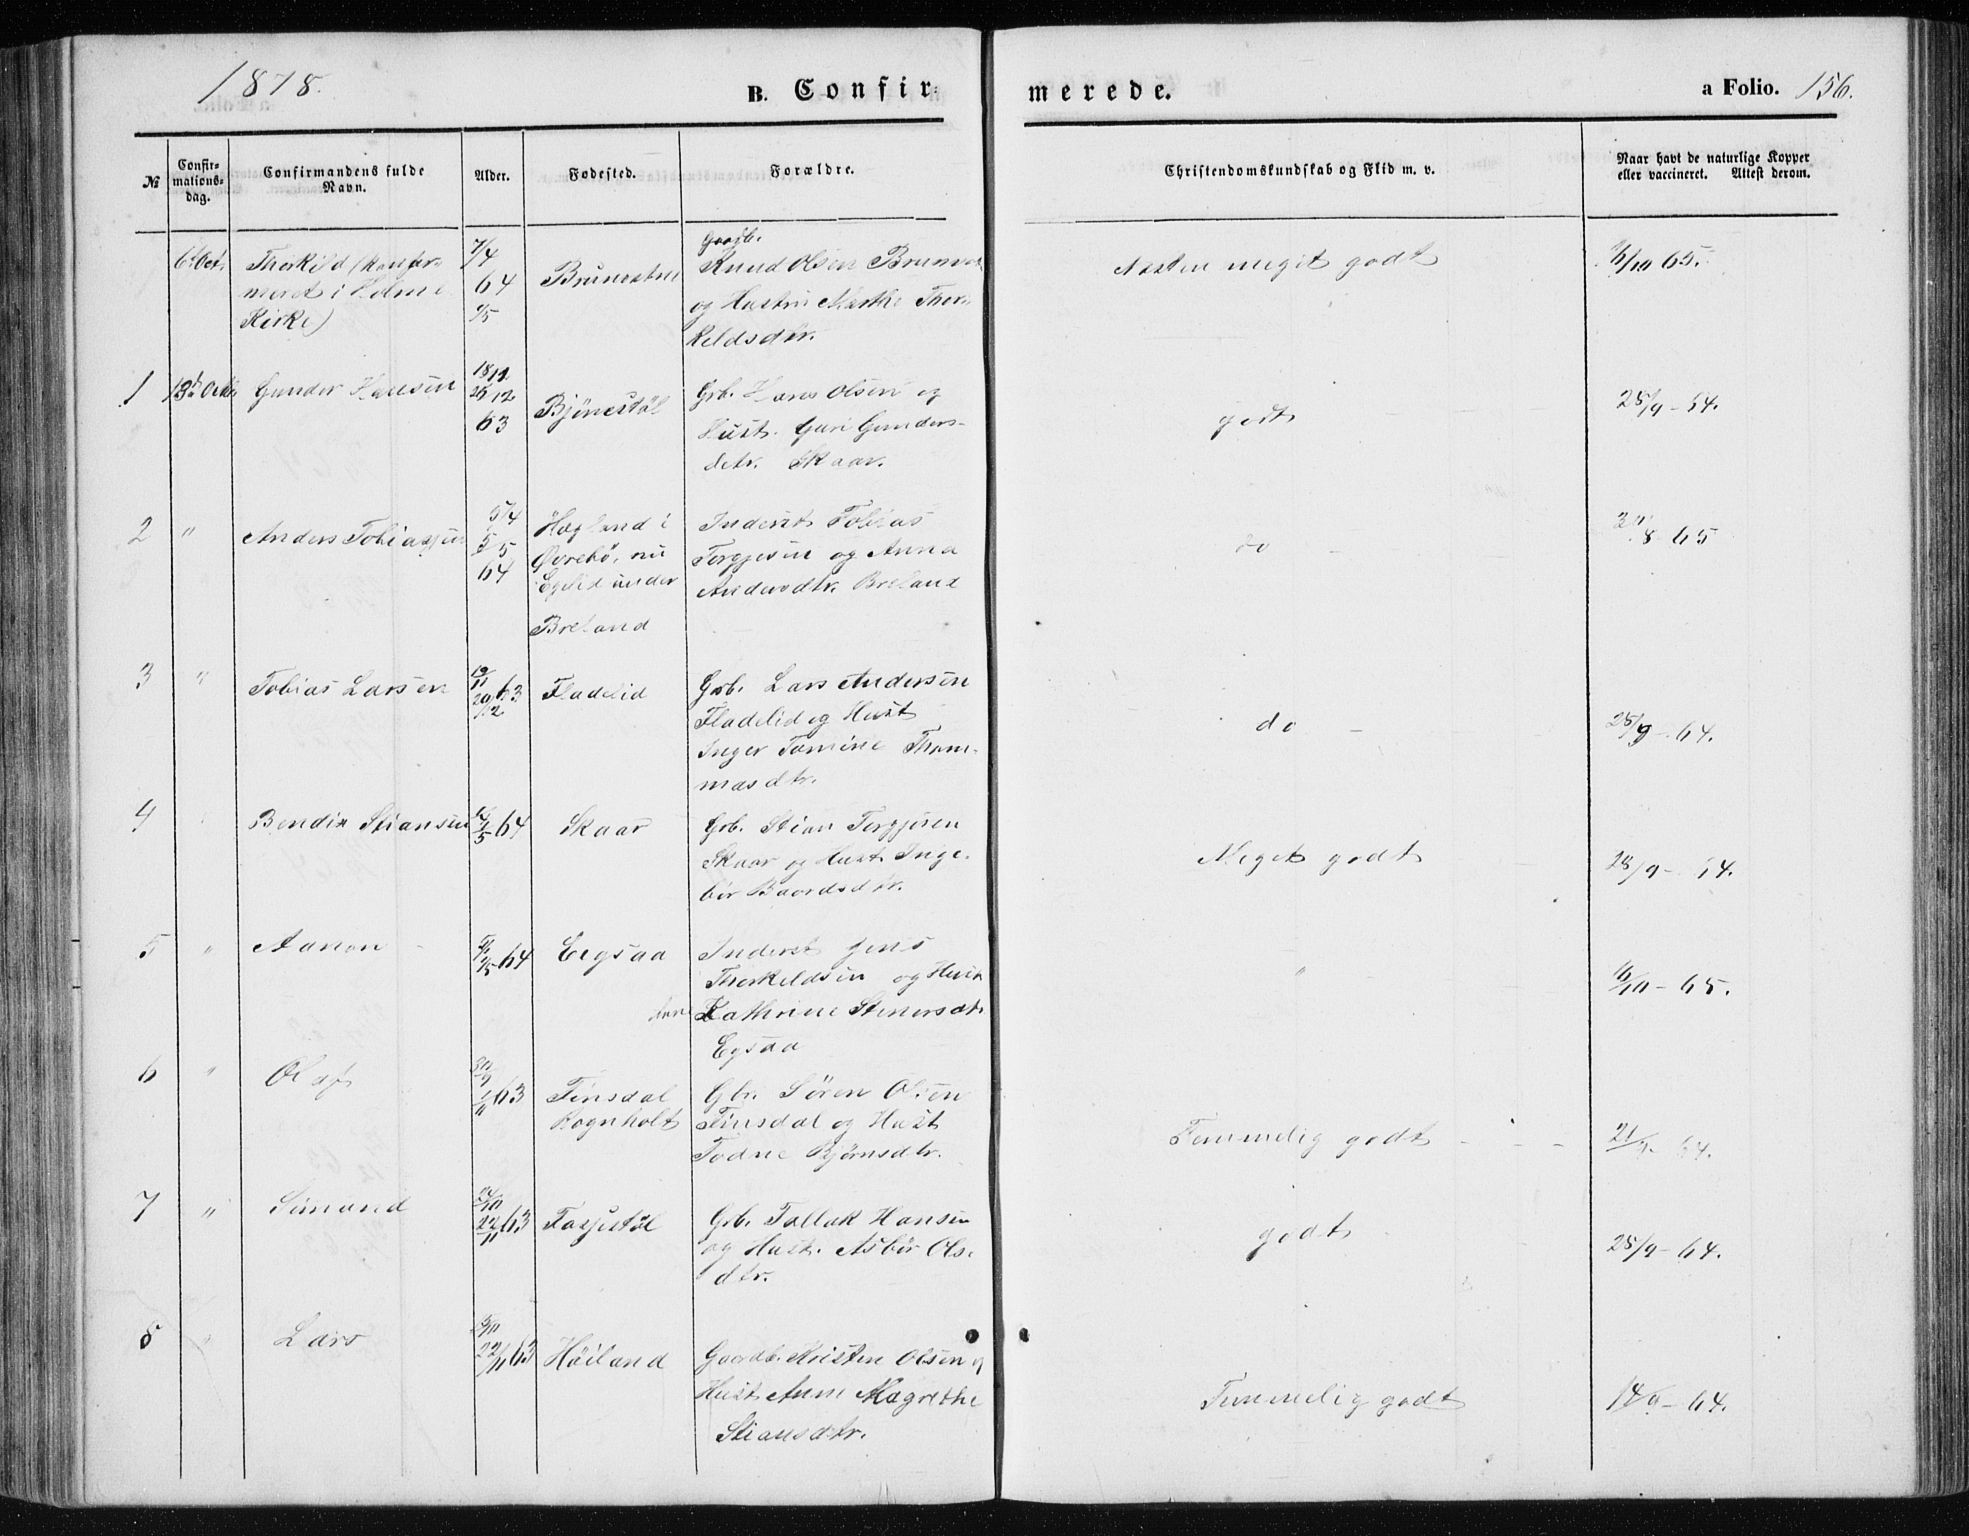 1878.
B. Confir-
merede.
a Folio. 156.
№
Confir-
mations-
dag.
Confirmandens fulde
Navn.
Alder.
Fødested.
Forældre.
Christendomskundskab og Flid m. v.
Naar havt de naturlige Kopper
eller vaccineret. Attest derom.
6t Oct. Thorkild (konfir-
meret i Holme
Kirke)
7/4
64
Gaardb.
Knud Olsen
og Hustru Marthe Thor-
keldsdtr.
Næsten meget godt
65.
1 13de Gunder Hansen
63
Bjönestöl
Grb. Hans Olsen og
Hust. Guri Gunders-
datr. Skaar.
godt
25/9 - 64.
2 " Anders Tobiassen
5/4
64
Hægland i
Øvrebö, nu
Egelid under
Breland
Inderst Tobias
Torgjesen og Anna
Andersdtr. Breland
do -
8 - 65
3 " Tobias Larsen
63
20/12
Fladelid
Grb. Lars Andersen
Fladelid og Hust
Inger Tomine Thom-
masdtr.
do -
25/9 - 64.
4 Bendix Stiansen
64
Skaar
Grb. Stian Torgjusen
Skaar og Hust. Inge-
bör Baardsdtr.
Meget godt
25/9 - 64.
5 " Aanon
64
Eegsaa
Inderst Jens
Thorkeldsen og Hust
Kathrine Stenersdt.
Egsaa
"
16/10 - 65.
6 " Olaf
63
Finsdal
Rognholt
Gbr. Sören Olsen
Finsdal og Hust
Todne Björnsdtr.
Temmelig godt - - -
64.
7 " Simund
22/11 63
Fasjestöl
Grb. Tallak Hansen
og Hust. Asbör Ols-
dtr.
godt
25/9 - 64.
8 " Lars
22/11 63
Höiland
Gaardb. Kristen Olsen og
Hust Anne Magrethe
Stiansdtr.
Temmelig godt
14/9 - 64.